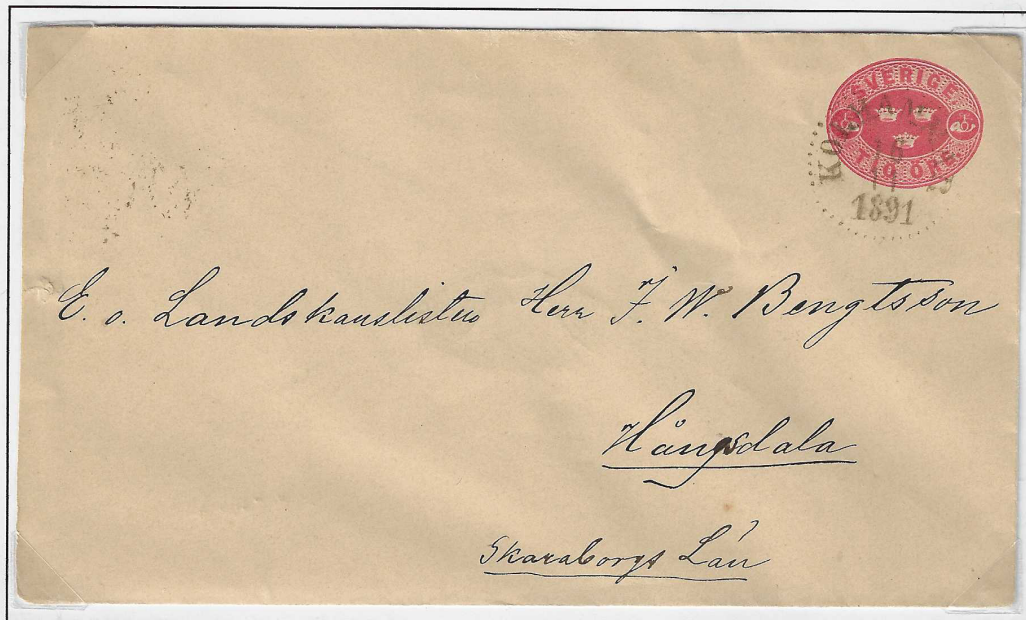 SVERIGE
TIO ÖRE
1891
E. o. Landskanslisten Herr F. W. Bengtsson
Hångsdala
Skaraborgs Län